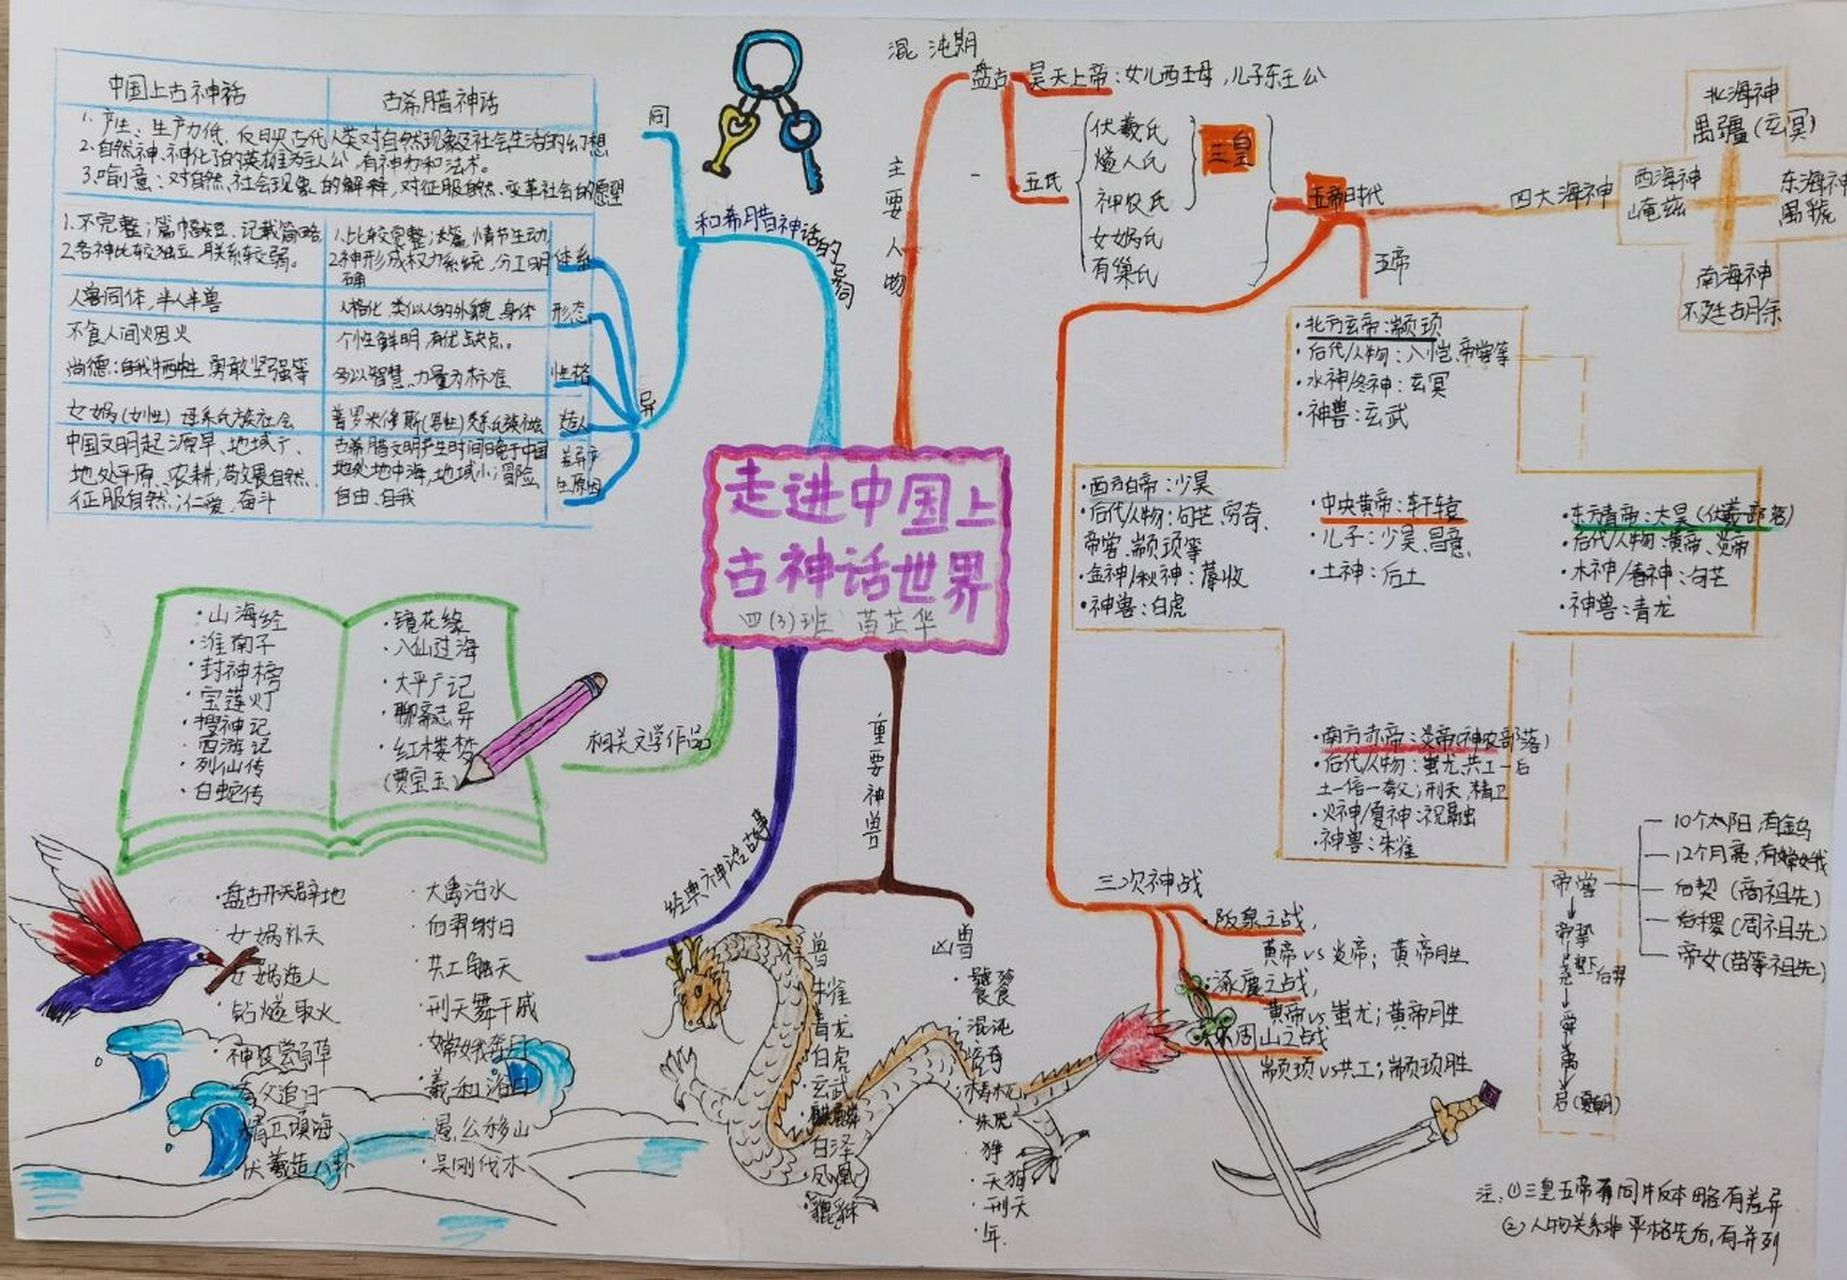 走进中国上
古神话世界
四(3)班 苗芷华
和希腊神话的异同
同
异
中国上古神话
古希腊神话
1.产生：生产力低,反映古代人类对自然现象及社会生活的幻想
2.自然神、神化了的英雄为主人公,有神力和法术。
3.创意：对自然、社会现象的解释,对征服自然、变革社会的愿望
1.不完整;篇幅短、记载简略
2.各神比较独立,联系较弱。
1.比较完整;长篇,情节生动
2.神形成权力系统,分工明
确
体系
人兽同体,半人半兽
人格化,类似人的外貌、身体
形态
不食人间烟火
个性鲜明,有优缺点。
尚德:自我牺牲、勇敢坚强等
多以智慧、力量为标准
性格
女娲(女性)母系氏族社会
普罗米修斯(男性)父系氏族社会
造人
中国文明起源早、地域广、
地处平原、农耕;敬畏自然、
征服自然;仁爱、奋斗
古希腊文明产生时间晚于中国
地处地中海,地域小;冒险
自由、自我
差异产
生原因
主要人物
混沌期
盘古
昊天上帝:女儿西王母,儿子东王公
五氏
伏羲氏
燧人氏
神农氏
女娲氏
有巢氏
三皇
五帝时代
四大海神
北海神
禺疆(玄冥)
西海神
崦兹
东海神
禺虢
南海神
不廷胡余
五帝
·北方玄帝:颛顼
·后代/人物:八恺、帝喾等
·水神/冬神:玄冥
·神兽:玄武
·西方白帝:少昊
·后代/人物:句芒、穷奇、
帝喾、颛顼等
·金神/秋神:蓐收
·神兽:白虎
·中央黄帝:轩辕
·儿子:少昊、昌意、
·土神:后土
·东方青帝:太昊(伏羲部落)
·后代/人物:黄帝、炎帝
·木神/春神:句芒
·神兽:青龙
·南方赤帝:炎帝(神农部落)
·后代/人物:蚩尤、共工一后
土一信一夸父;刑天、精卫
·火神/夏神:祝融
·神兽:朱雀
帝喾
10个太阳,有金乌
12个月亮,有嫦娥
后契(商祖先)
后稷(周祖先)
帝女(苗等祖先)
帝挚
尧
后羿
舜
禹
启(夏朝)
三次神战
·阪泉之战,
黄帝vs炎帝;黄帝胜
·涿鹿之战,
黄帝vs蚩尤;黄帝胜
·不周山之战
颛顼vs共工;颛顼胜
相关文学作品
·山海经
·淮南子
·封神榜
·宝莲灯
·搜神记
·西游记
·列仙传
·白蛇传
·镜花缘
·八仙过海
·太平广记
·聊斋志异
·红楼梦
(贾宝玉)
经典神话故事
·盘古开天辟地
·女娲补天
·女娲造人
·钻燧取火
·神农尝百草
·夸父追日
·精卫填海
·伏羲造八卦
·大禹治水
·后羿射日
·共工触天
·刑天舞干戚
·嫦娥奔月
·羲和浴日
·愚公移山
·吴刚伐木
重要神兽
祥兽
·朱雀
·青龙
·白虎
·玄武
·麒麟
·白泽
·凤凰
·貔貅
凶兽
·饕餮
·混沌
·穷奇
·梼杌
·狰
·天狗
·刑天
·年
注:①三皇五帝有同版本略有差异
②人物关系非严格先后,有并列